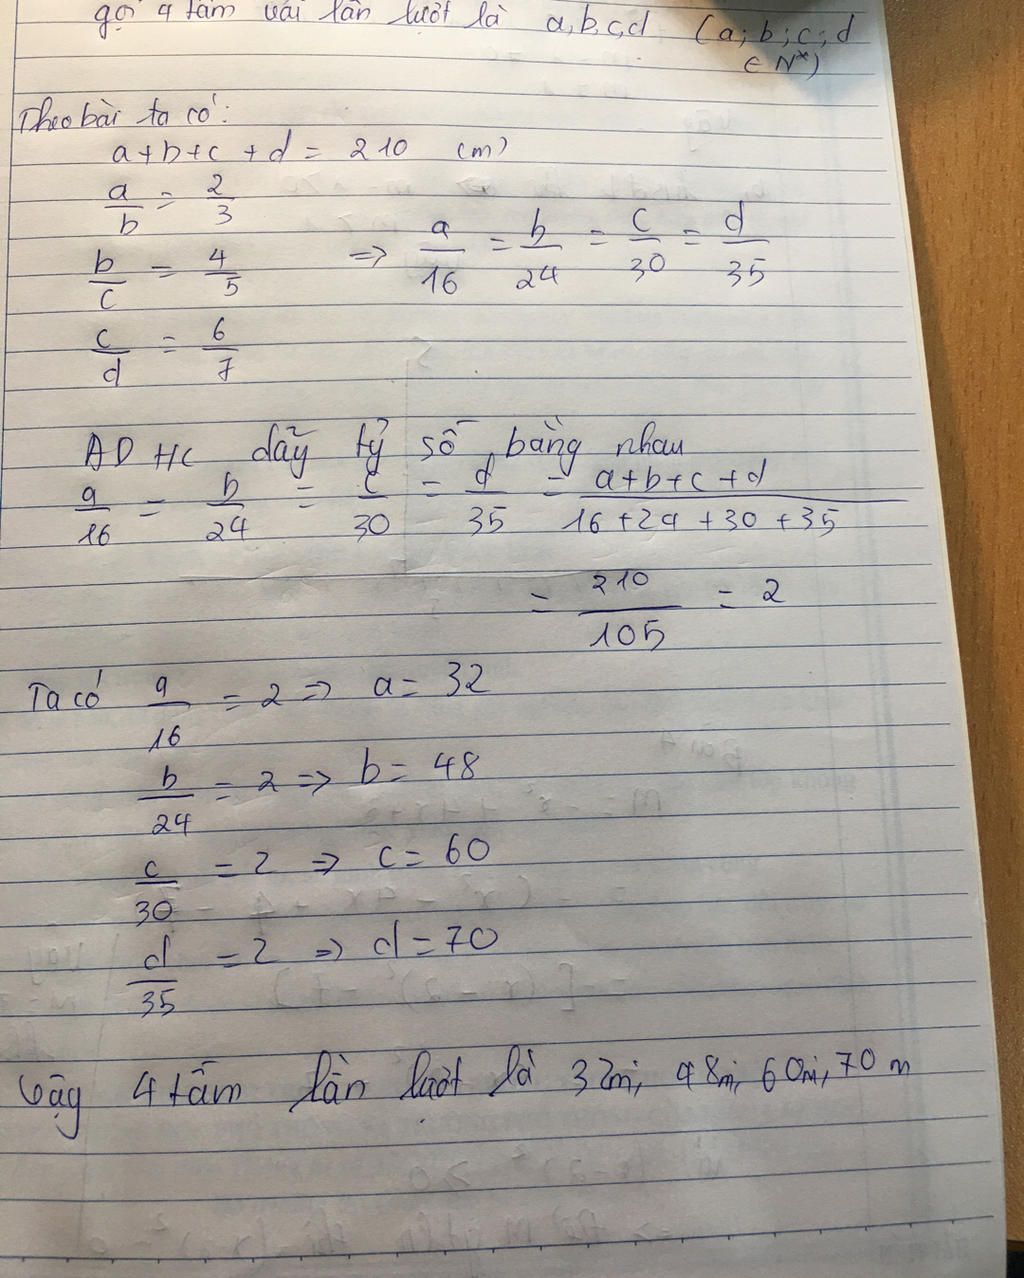 gọi 4 tấm vải lần lượt là a,b,c,d (a;b;c;d
∈ N*)
Theo bài ta có:
a+b+c+d = 210 (m)
a/b = 2/3
b/c = 4/5 => a/16 = b/24 = c/30 = d/35
c/d = 6/7
AD HC dãy tỷ số bằng nhau
a/16 = b/24 = c/30 = d/35 = a+b+c+d/16+24+30+35
= 210/105 = 2
Ta có a/16 = 2 => a = 32
b/24 = 2 => b = 48
c/30 = 2 => c = 60
d/35 = 2 => d = 70
Vậy 4 tấm lần lượt là 32m; 48m; 60m; 70 m